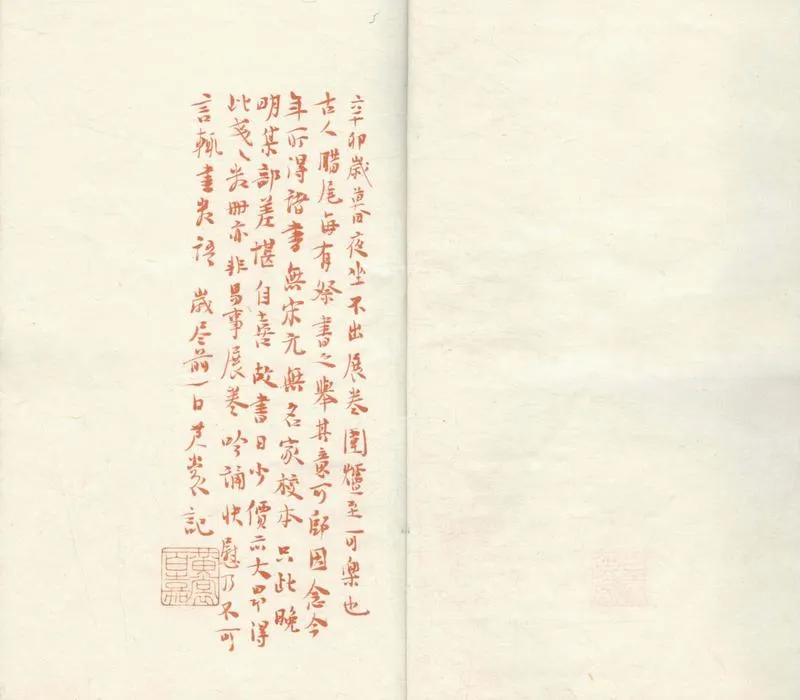 辛卯歲暮夜坐不出展卷圍爐至可樂也
古人臘尾每有祭書之舉其意可師因念今
年所得諸書無宋元無名家校本只此晚
明集部差堪自喜故書日少價亦大昂得
此戔〻數冊亦非易事展卷吟誦快慰乃不可
言輒書數語 歲尽前一日黄裳記
黃裳百嘉